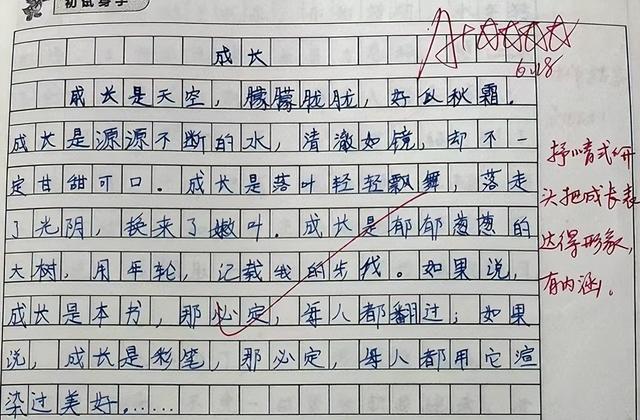 初试身手
成长
成长是天空，朦朦胧胧，好似秋霜。
成长是源源不断的水，清澈如镜，却不一
定甘甜可口。成长是落叶轻轻飘舞，落走
了光阴，换来了嫩叶。成长是郁郁葱葱的
大树，用年轮，记载线的步伐。如果说，
成长是本书，那必定，每人都翻过；如果
说，成长是彩笔，那必定，每人都用它渲
染过美好……
A+☆☆☆☆☆
6.18
抒情式开
头把成长表
达得形象，
有内涵。